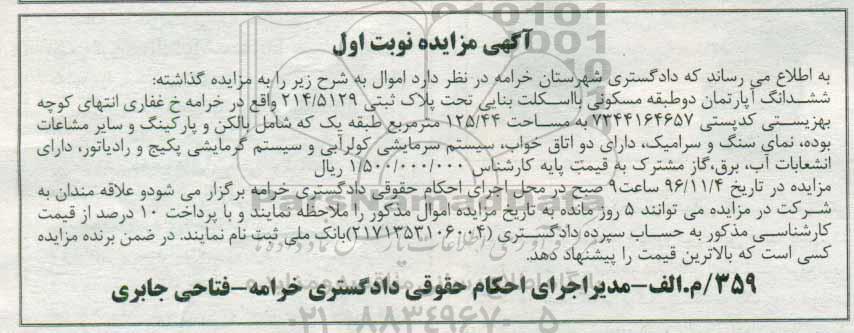 آگهی مزایده نوبت اول
به اطلاع می رساند که دادگستری شهرستان خرامه در نظر دارد اموال به شرح زیر را به مزایده گذاشته:
ششدانگ آپارتمان دوطبقه مسکونی بااسکلت بنایی تحت پلاک ثبتی ۲۱۴/۵۱۲۹ واقع در خرامه خ غفاری انتهای کوچه
بهزیستی کدپستی ۷۳۴۴۱۶۴۶۵۷ به مساحت ۱۲۵/۴۴ مترمربع طبقه یک که شامل بالکن و پارکینگ و سایر مشاعات
بوده، نمای سنگ و سرامیک، دارای دو اتاق خواب، سیستم سرمایشی کولرآبی و سیستم گرمایشی پکیج و رادیاتور، دارای
انشعابات آب، برق،گاز مشترک به قیمت پایه کارشناس ۱/۵۰۰/۰۰۰/۰۰۰ ریال
مزایده در تاریخ ۹۶/۱۱/۴ ساعت۹ صبح در محل اجرای احکام حقوقی دادگستری خرامه برگزار می شودو علاقه مندان به
شرکت در مزایده می توانند ۵ روز مانده به تاریخ مزایده اموال مذکور را ملاحظه نمایند و با پرداخت ۱۰ درصد از قیمت
کارشناسی مذکور به حساب سپرده دادگستری (۲۱۷۱۳۵۳۱۰۶۰۰۴)بانک ملی ثبت نام نمایند. در ضمن برنده مزایده
کسی است که بالاترین قیمت را پیشنهاد دهد.
۳۵۹/م.الف-مدیراجرای احکام حقوقی دادگستری خرامه-فتاحی جابری
ParsNamadData
۰۲۱-۸۸۳۴۹۶۷۰-۵